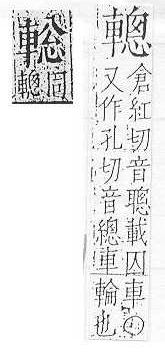 倉紅切音聰載囚車
又作孔切音總車輪也
同